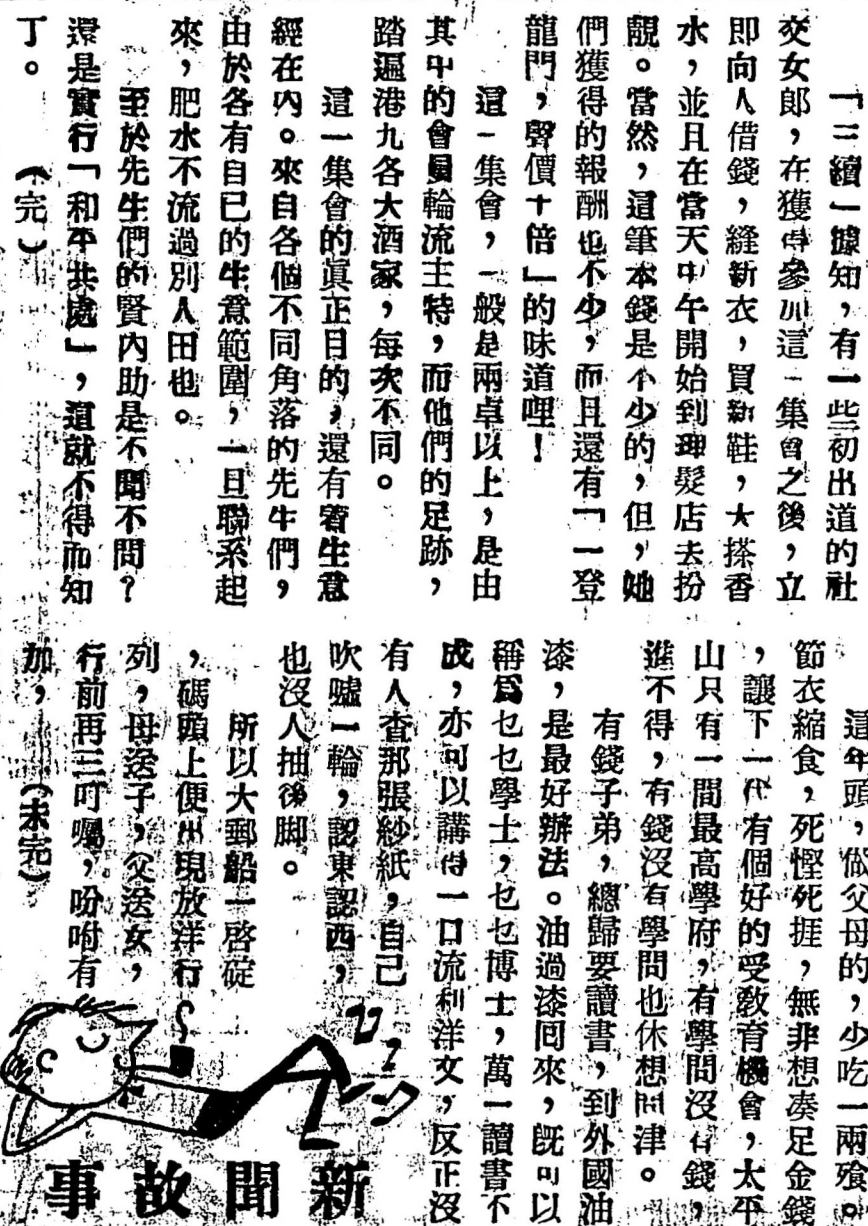 「三續」據知，有一些初出道的社
交女郎，在獲得參加這一集會之後，立
即向人借錢，縫新衣，買新鞋，大搽香
水，並且在當天中午開始到理髮店去扮
靚。當然，這筆本錢是不少的，但，她
們獲得的報酬也不少，而且還有「一登
龍門，聲價十倍」的味道哩！
這一集會，一般是兩卓以上，是由
其中的會員輪流主特，而他們的足跡，
踏遍港九各大酒家，每次不同。
這一集會的眞正目的，還有着生意
經在內。來自各個不同角落的先生們，
由於各有自己的生意範圍，一旦聯系起
來，肥水不流過別人田也。
至於先生們的賢內助是不聞不問？
還是實行「和平共處」，這就不得而知
了。　（完）
這年頭，做父母的，少吃一兩飱。
節衣縮食，死慳死捱，無非想湊足金錢
，讓下一代有個好的受敎育機會，太平
山只有一間最高學府，有學問沒有錢，
進不得，有錢沒有學問也休想問津。
有錢子弟，總歸要讀書，到外國油
漆，是最好辦法。油過漆回來，旣可以
稱爲乜乜學士，乜乜博士，萬一讀書不
成，亦可以講得一口流利洋文，反正沒
有人查那張紗紙，自己
吹噓一輪，認東認西，
也沒人抽後脚。
所以大郵船一啓碇
，碼頭上便出現放洋行
列，母送子，父送女，
行前再三叮囑，吩咐有
加，　（未完）
新聞故事